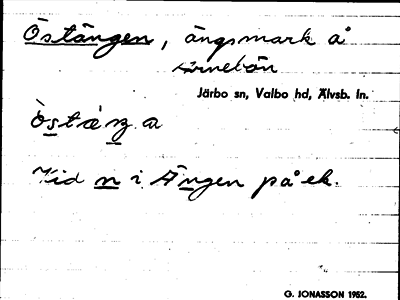 Östängen, ängsmark å
Järbo sn, Valbo hd, Älvsb. ln.
Òstáṉẕa
Vid n i Ängen på ek.
G. JONASSON 1952.